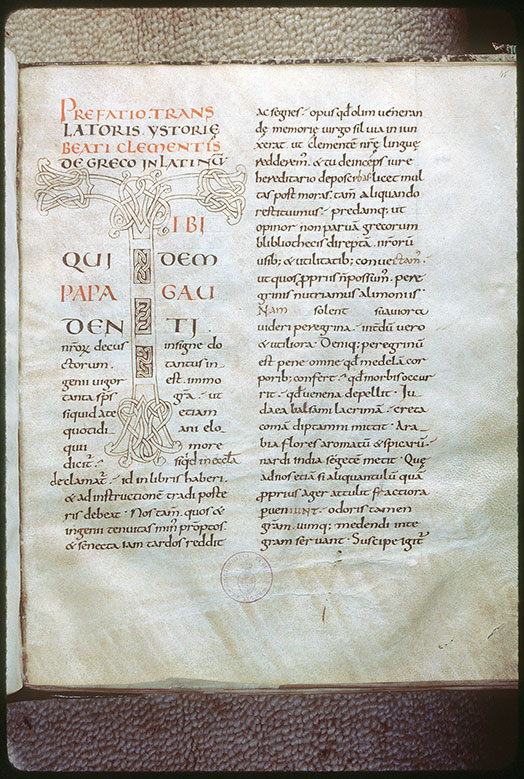 PREFATIO TRANS
LATORIS YSTORIĘ
BEATI CLEMENTIS
DE GRECO IN LATINŪ
TIBI
QUI DEM
PAPA GAU
DEN TI.
nr̄oꝝ decus insigne do
ctorum. tantus in
genii uigor est. immo
tanta sp̄s gr̄a. ut
siquid ate etiam
quotidi ani elo
quii more
dicit̄. siqd in eccl̄a
declamat̄. id in libris haberi.
& ad instructionem tradi poste
ris debeat. Nos tam̄. quos &
ingenii tenuitas min̄ p̄ptos
& senecta iam tardos reddit
ac segnes. opus qd̄ olim ueneran
dę memorię uirgo siluia in iun
xerat. ut clementē nr̄ę linguę
redderem. & tu deinceps iure
hereditario deposcebas licet mul
tas post moras. tam̄ aliquando
restituimus. predamq; ut
opinor non paruā grecorum
bliblothecis direptā. nr̄orū
usib; & utilitatib; conuectam.
ut quos p̄priis n̄ possum̄. pere
grinis nutriamus alimoniis
Nam solent suauiora
uideri peregrina. int̄dū uero
& utiliora. Deniq; peregrinū
est pene omne qd̄ medelā cor
porib; confert. qd̄ morbis occur
rit. qd̄ uenena depellit. Iu
daea balsami lacrimā. creta
comā diptamni mittit. Ara
bia flores aromatū & spicarū.
nardi india segetem metit. Quę
ad nos etiā si aliquantulū quā
p̄prius ager attulit fractiora
p̄ueniunt. odoris tamen
gr̄am. uimq; medendi inte
gram seruant. Suscipe igit̄